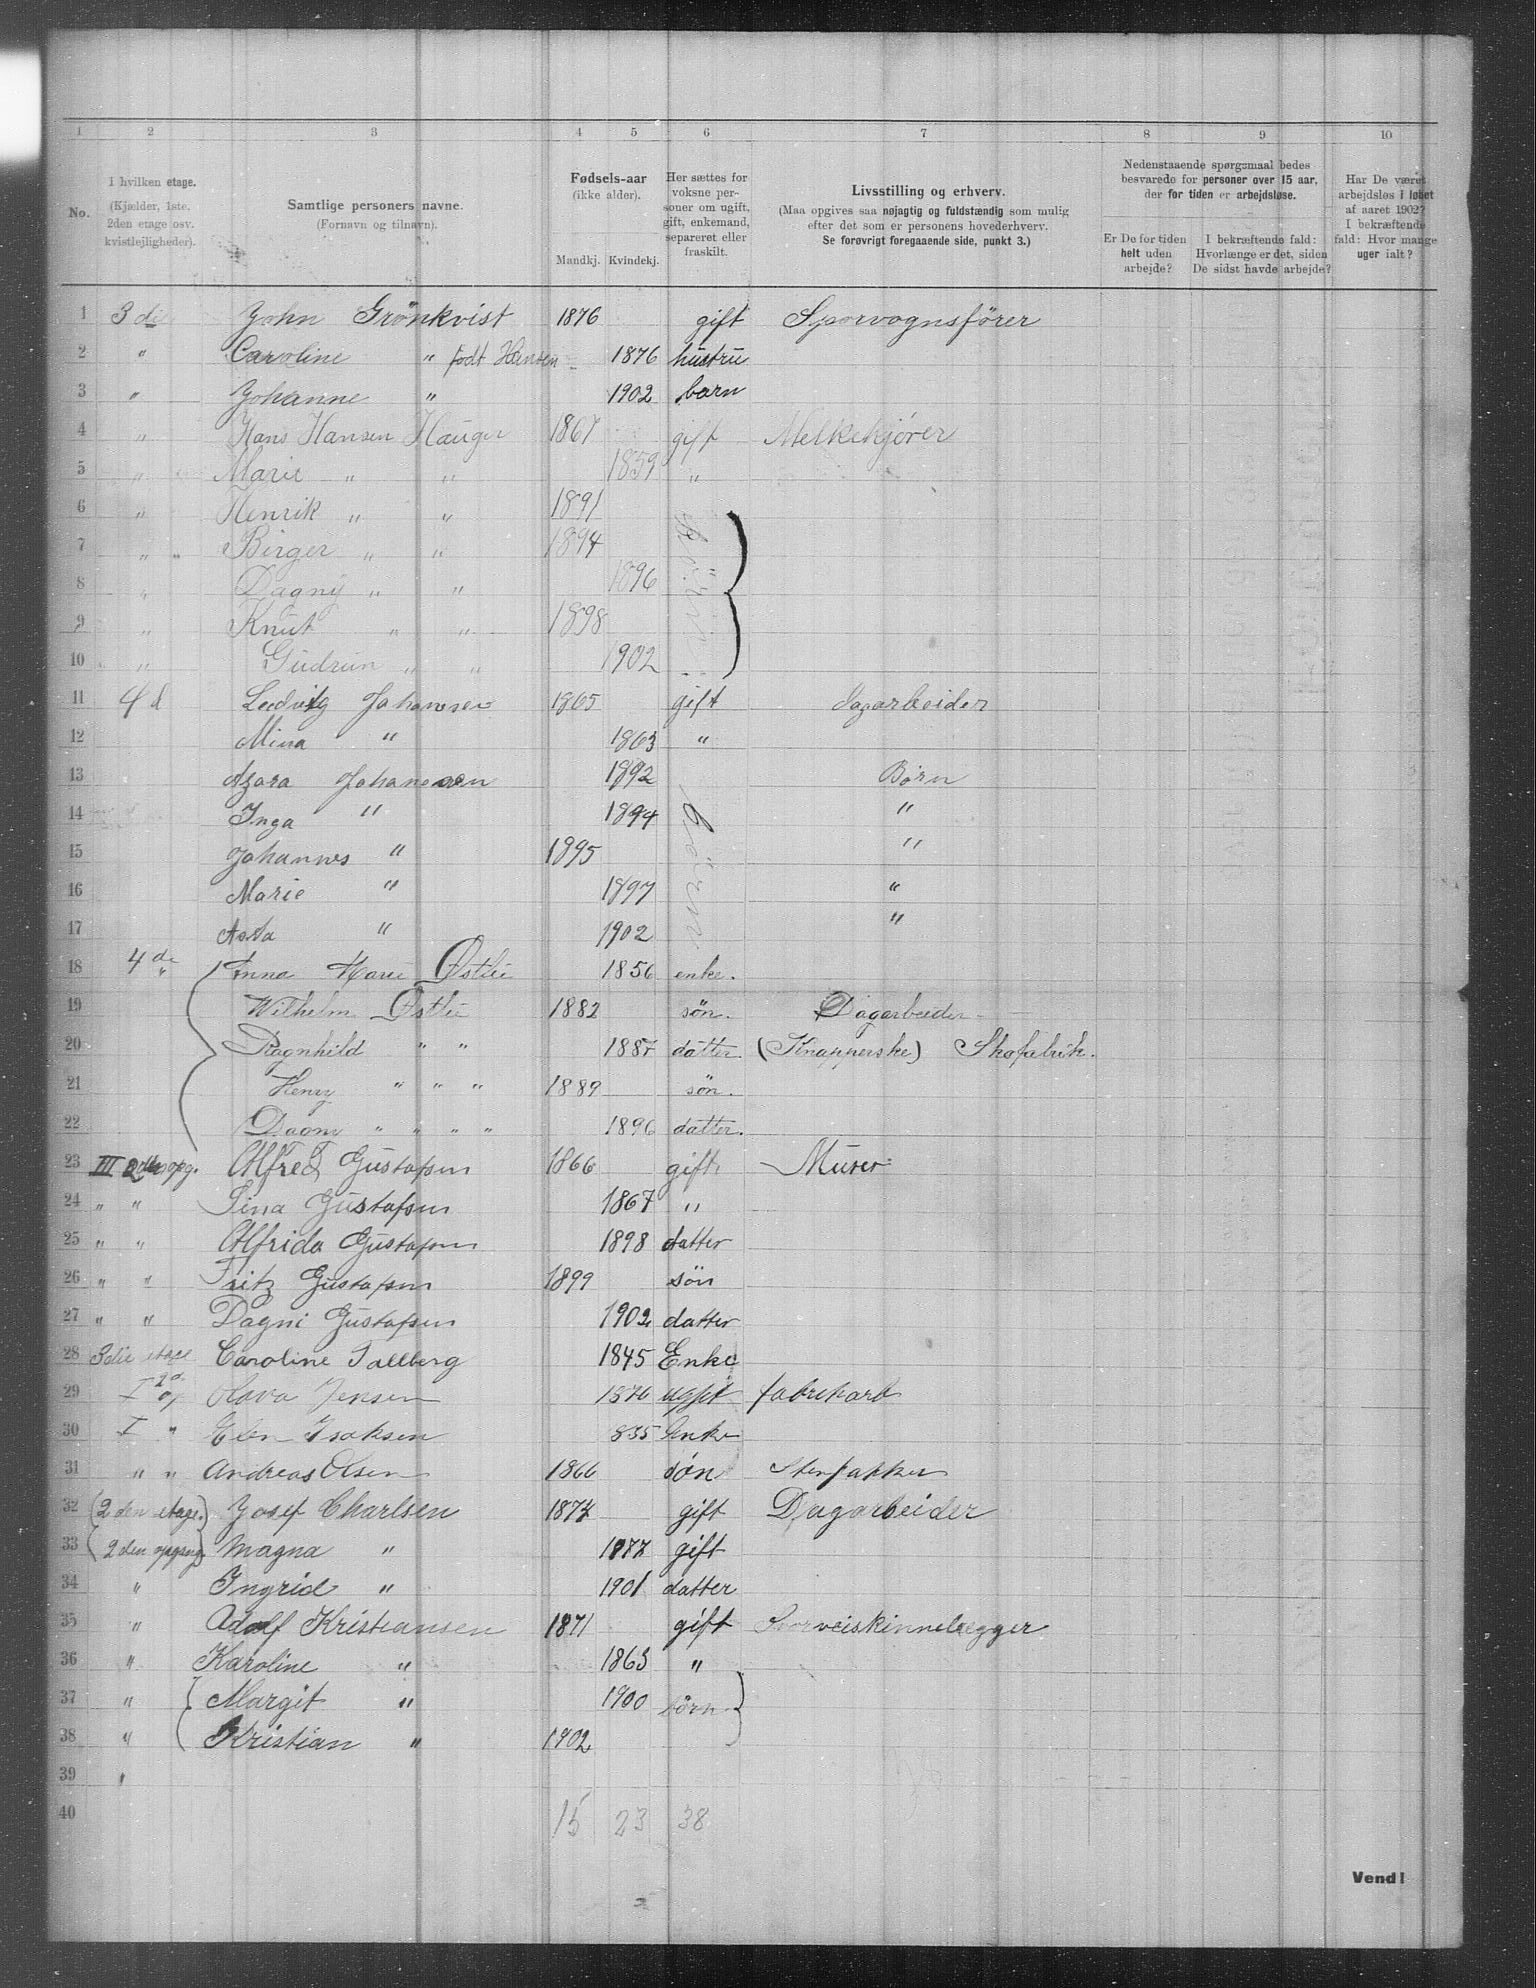 1 2 3 4 5 6 7 8 9 10
No.
I hvilken etage. (Kjælder, 1ste. 2den etage osv. kvistlejligheder).
Samtlige personers navne. (Fornavn og tilnavn).
Fødsels-aar (ikke alder).
Mandkj. Kvindekj.
Her sættes for voksne personer om ugift, gift, enkemand, separeret eller fraskilt.
Livsstilling og erhverv.
(Maa opgives saa nøjagtig og fuldstændig som mulig efter det som er personens hovederhverv.
Se forøvrigt foregaaende side, punkt 3.)
Nedenstaaende spørgsmaal bedes besvarede for personer over 15 aar, der for tiden er arbejdsløse.
Er De for tiden helt uden arbejde?
I bekræftende fald: Hvorlænge er det, siden De sidst havde arbejde?
Har De været arbejdsløs i løbet af aaret 1902? I bekræftende fald: Hvor mange uger ialt?
1 3 die John Grönkvist 1876 gift Sporvognsförer
2 " Caroline " födt Hansen 1876 hustru
3 " Johanne " 1902 barn
4 " Hans Hansen Hauger 1867 gift Melkekjører
5 " Marie " " 1859 "
6 " Henrik " " 1891
7 " " Birger " " 1894 Börn
8 " Dagny " " 1896
9 " Knut " " 1898
10 " Gudrun " " 1902
11 4 d Ludvig Johansen 1865 gift Dagarbeider
12 Mina " 1863 "
13 Azora Johansen 1892 Børn
14 Inga " 1894 börn "
15 Johannes " 1895 "
16 Marie " 1897 "
17 Asta " 1902 "
18 4 de " Anna Marie Østlie 1856 enke.
19 Wilhelm Østlie 1882 søn. Dagarbeider
20 Ragnhild " " 1887 datter (Knapperske) Skofabrik.
21 Henry " " " 1889 søn.
22 Dagny " " " " 1896 datter.
23 III 2den opg. Alfred Gustafsen 1866 gift Murer
24 " " Lina Gustafsen 1867 "
25 " " Alfrida Gustafsen 1898 datter
26 " " Fritz Gustafsen 1899 sön
27 " " Dagni Gustafsen 1902 datter
28 3die etage Caroline Tallberg 1845 Enke
29 I 2 op Olava Jensen 1876 ugift fabrikarb
30 I " Elen Isaksen 835 Enke
31 " " Andreas Olsen 1866 søn
32 (2 den etage.) Josef Charlsen 1874 gift Dagarbeider
33 (2 den opgang) Magna " 1877 gift
34 " Ingrid " 1901 datter
35 " Adolf Kristiansen 1871 gift Sporveiskinnelægger
36 " Karoline " 1863 "
37 " Margit " 1900 børn
38 " Kristian " 1902
39 "
40 15 23 38
Vend!